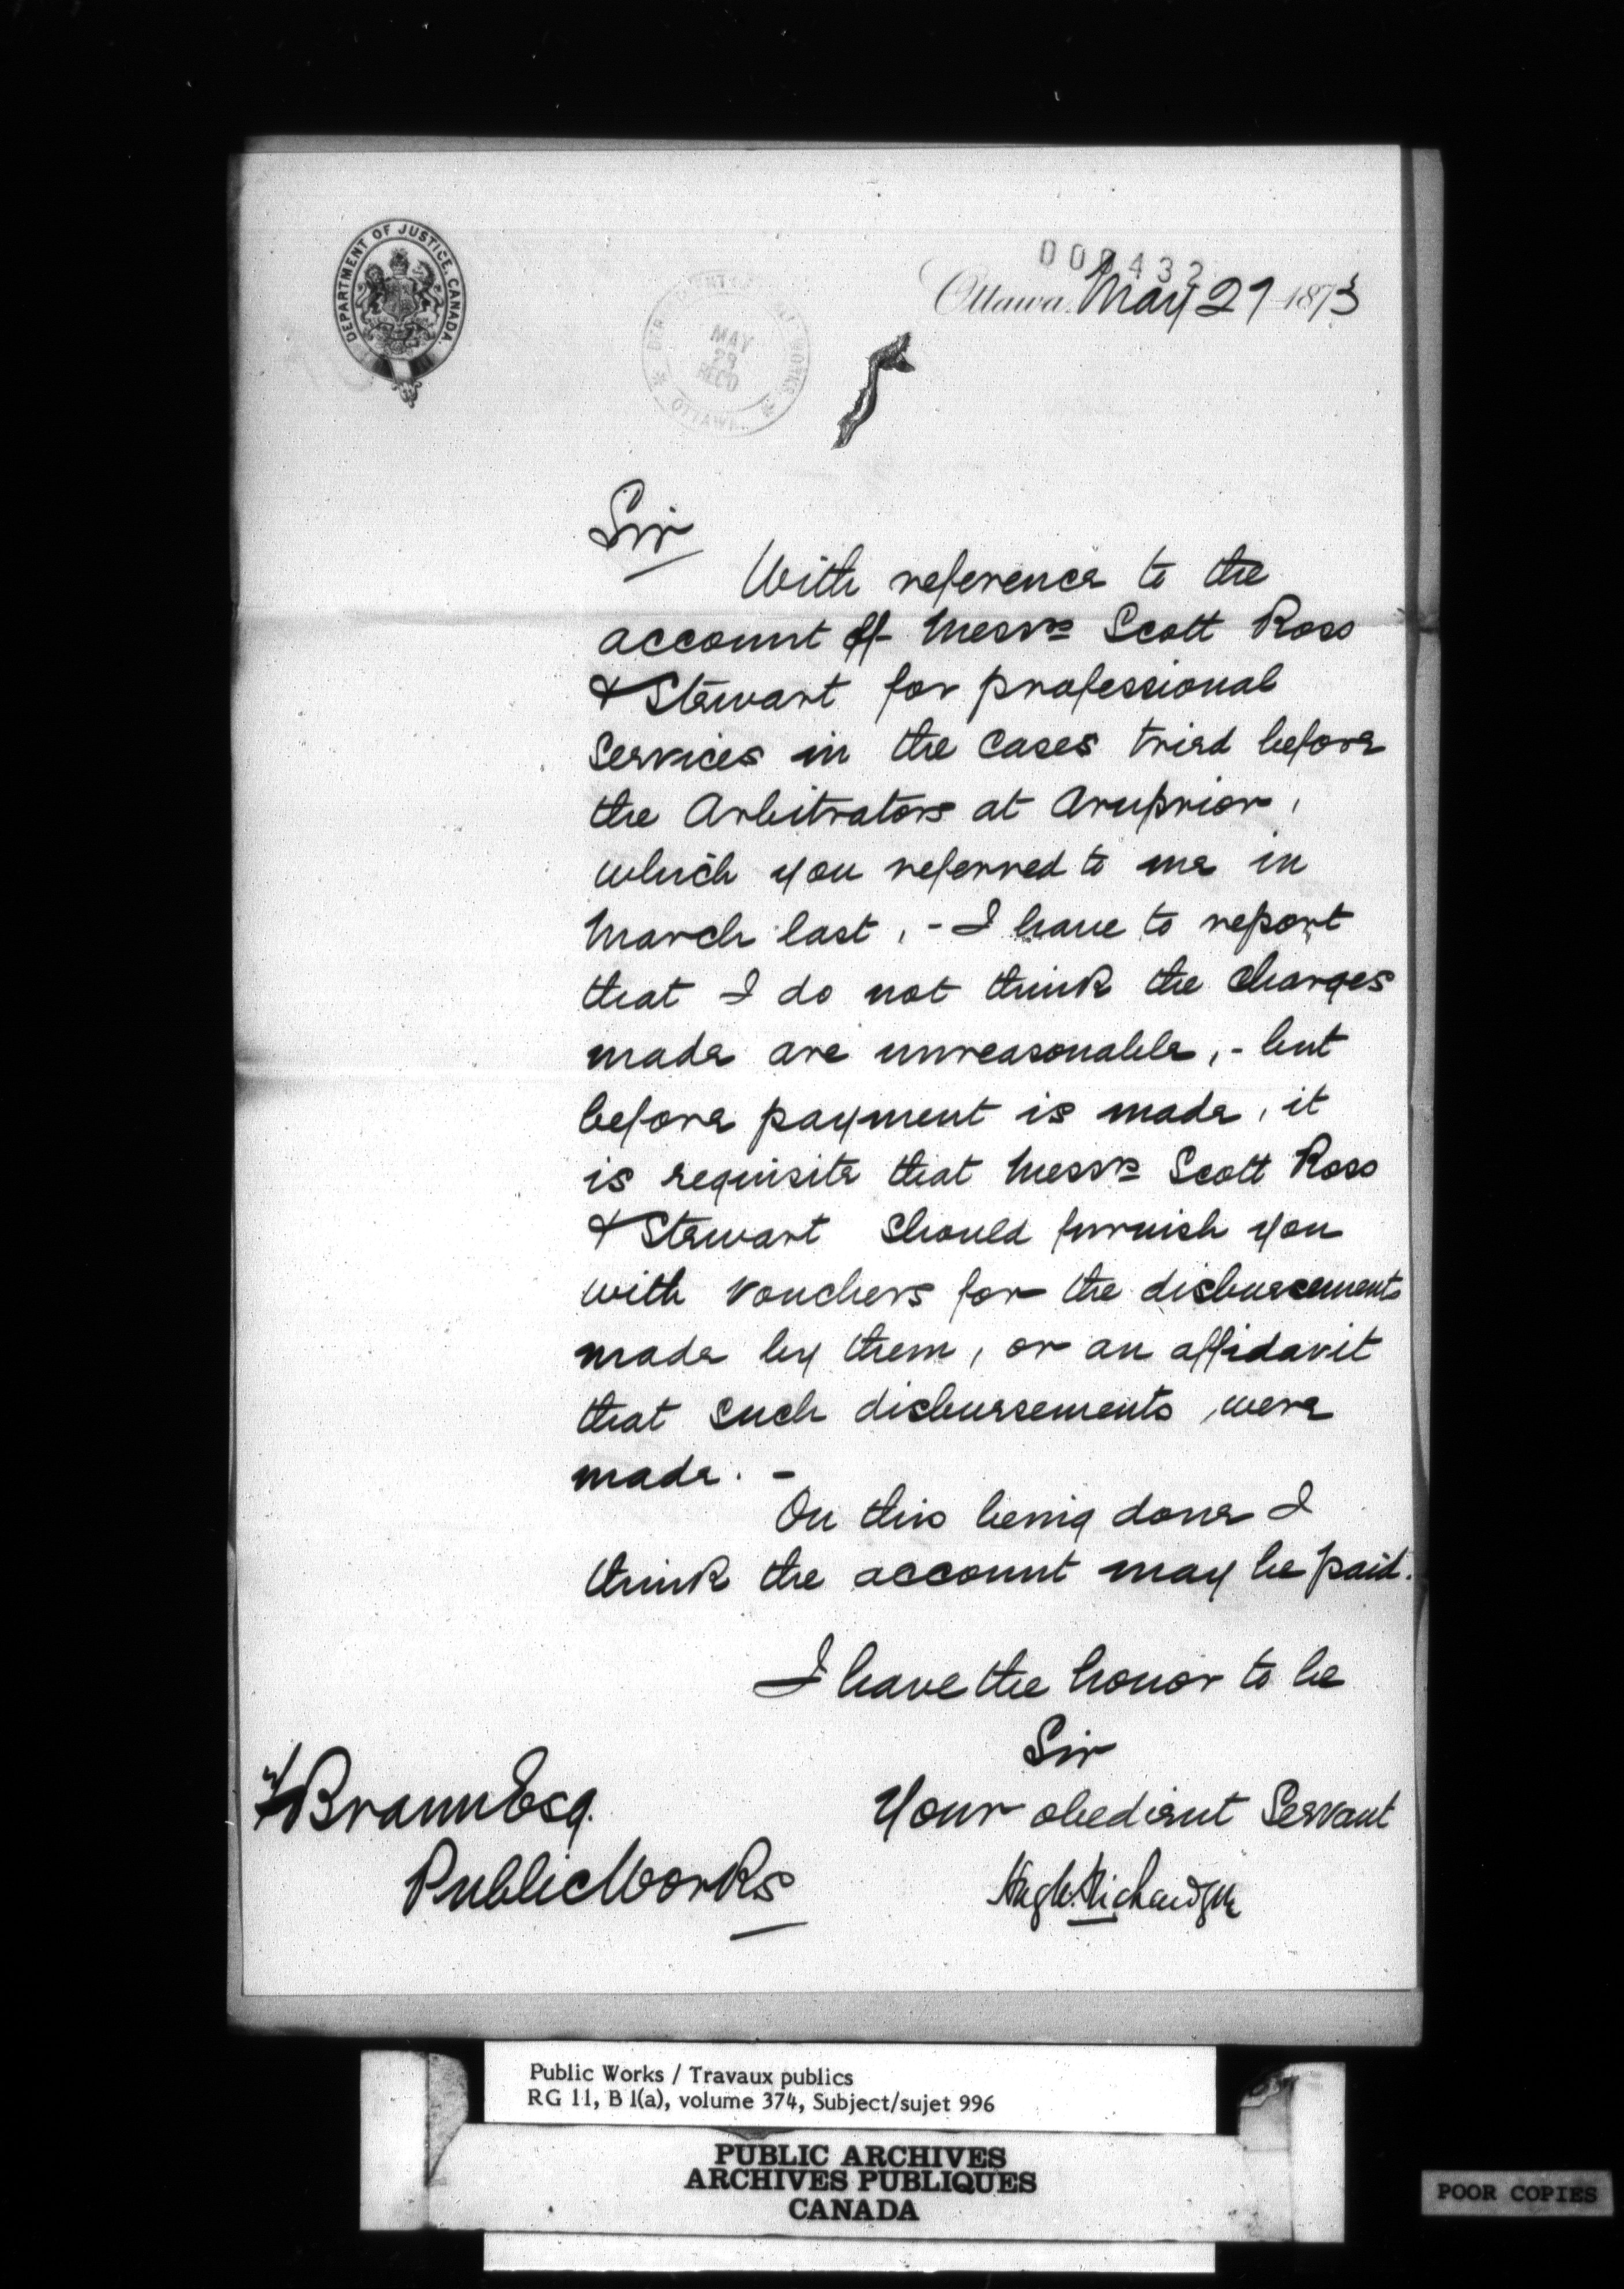 DEPARTMENT OF JUSTICE, CANADA.
Ottawa. May 29 1873
MAY
29
REC'D
OTTAWA
Sir
With reference to the
account of Messrs Scott Ross
& Stewart for professional
Services in the Cases tried before
the Arbitrators at Arnprior,
which you referred to me in
March last, - I have to report
that I do not think the Charges
made are unreasonable, - but
before payment is made, it
is requisite that Messrs Scott Ross
& Stewart should furnish you
with vouchers for the disbursements
made by them, or an affidavit
that such disbursements were
made. -
On this being done I
think the account may be paid.
I have the honor to be
Sir
Your obedient Servant
Hugh Richardson
F Braun Esq.
Public Works
Public Works / Travaux publics
RG 11, B 1(a), volume 374, Subject/sujet 996
PUBLIC ARCHIVES
ARCHIVES PUBLIQUES
CANADA
POOR COPIES